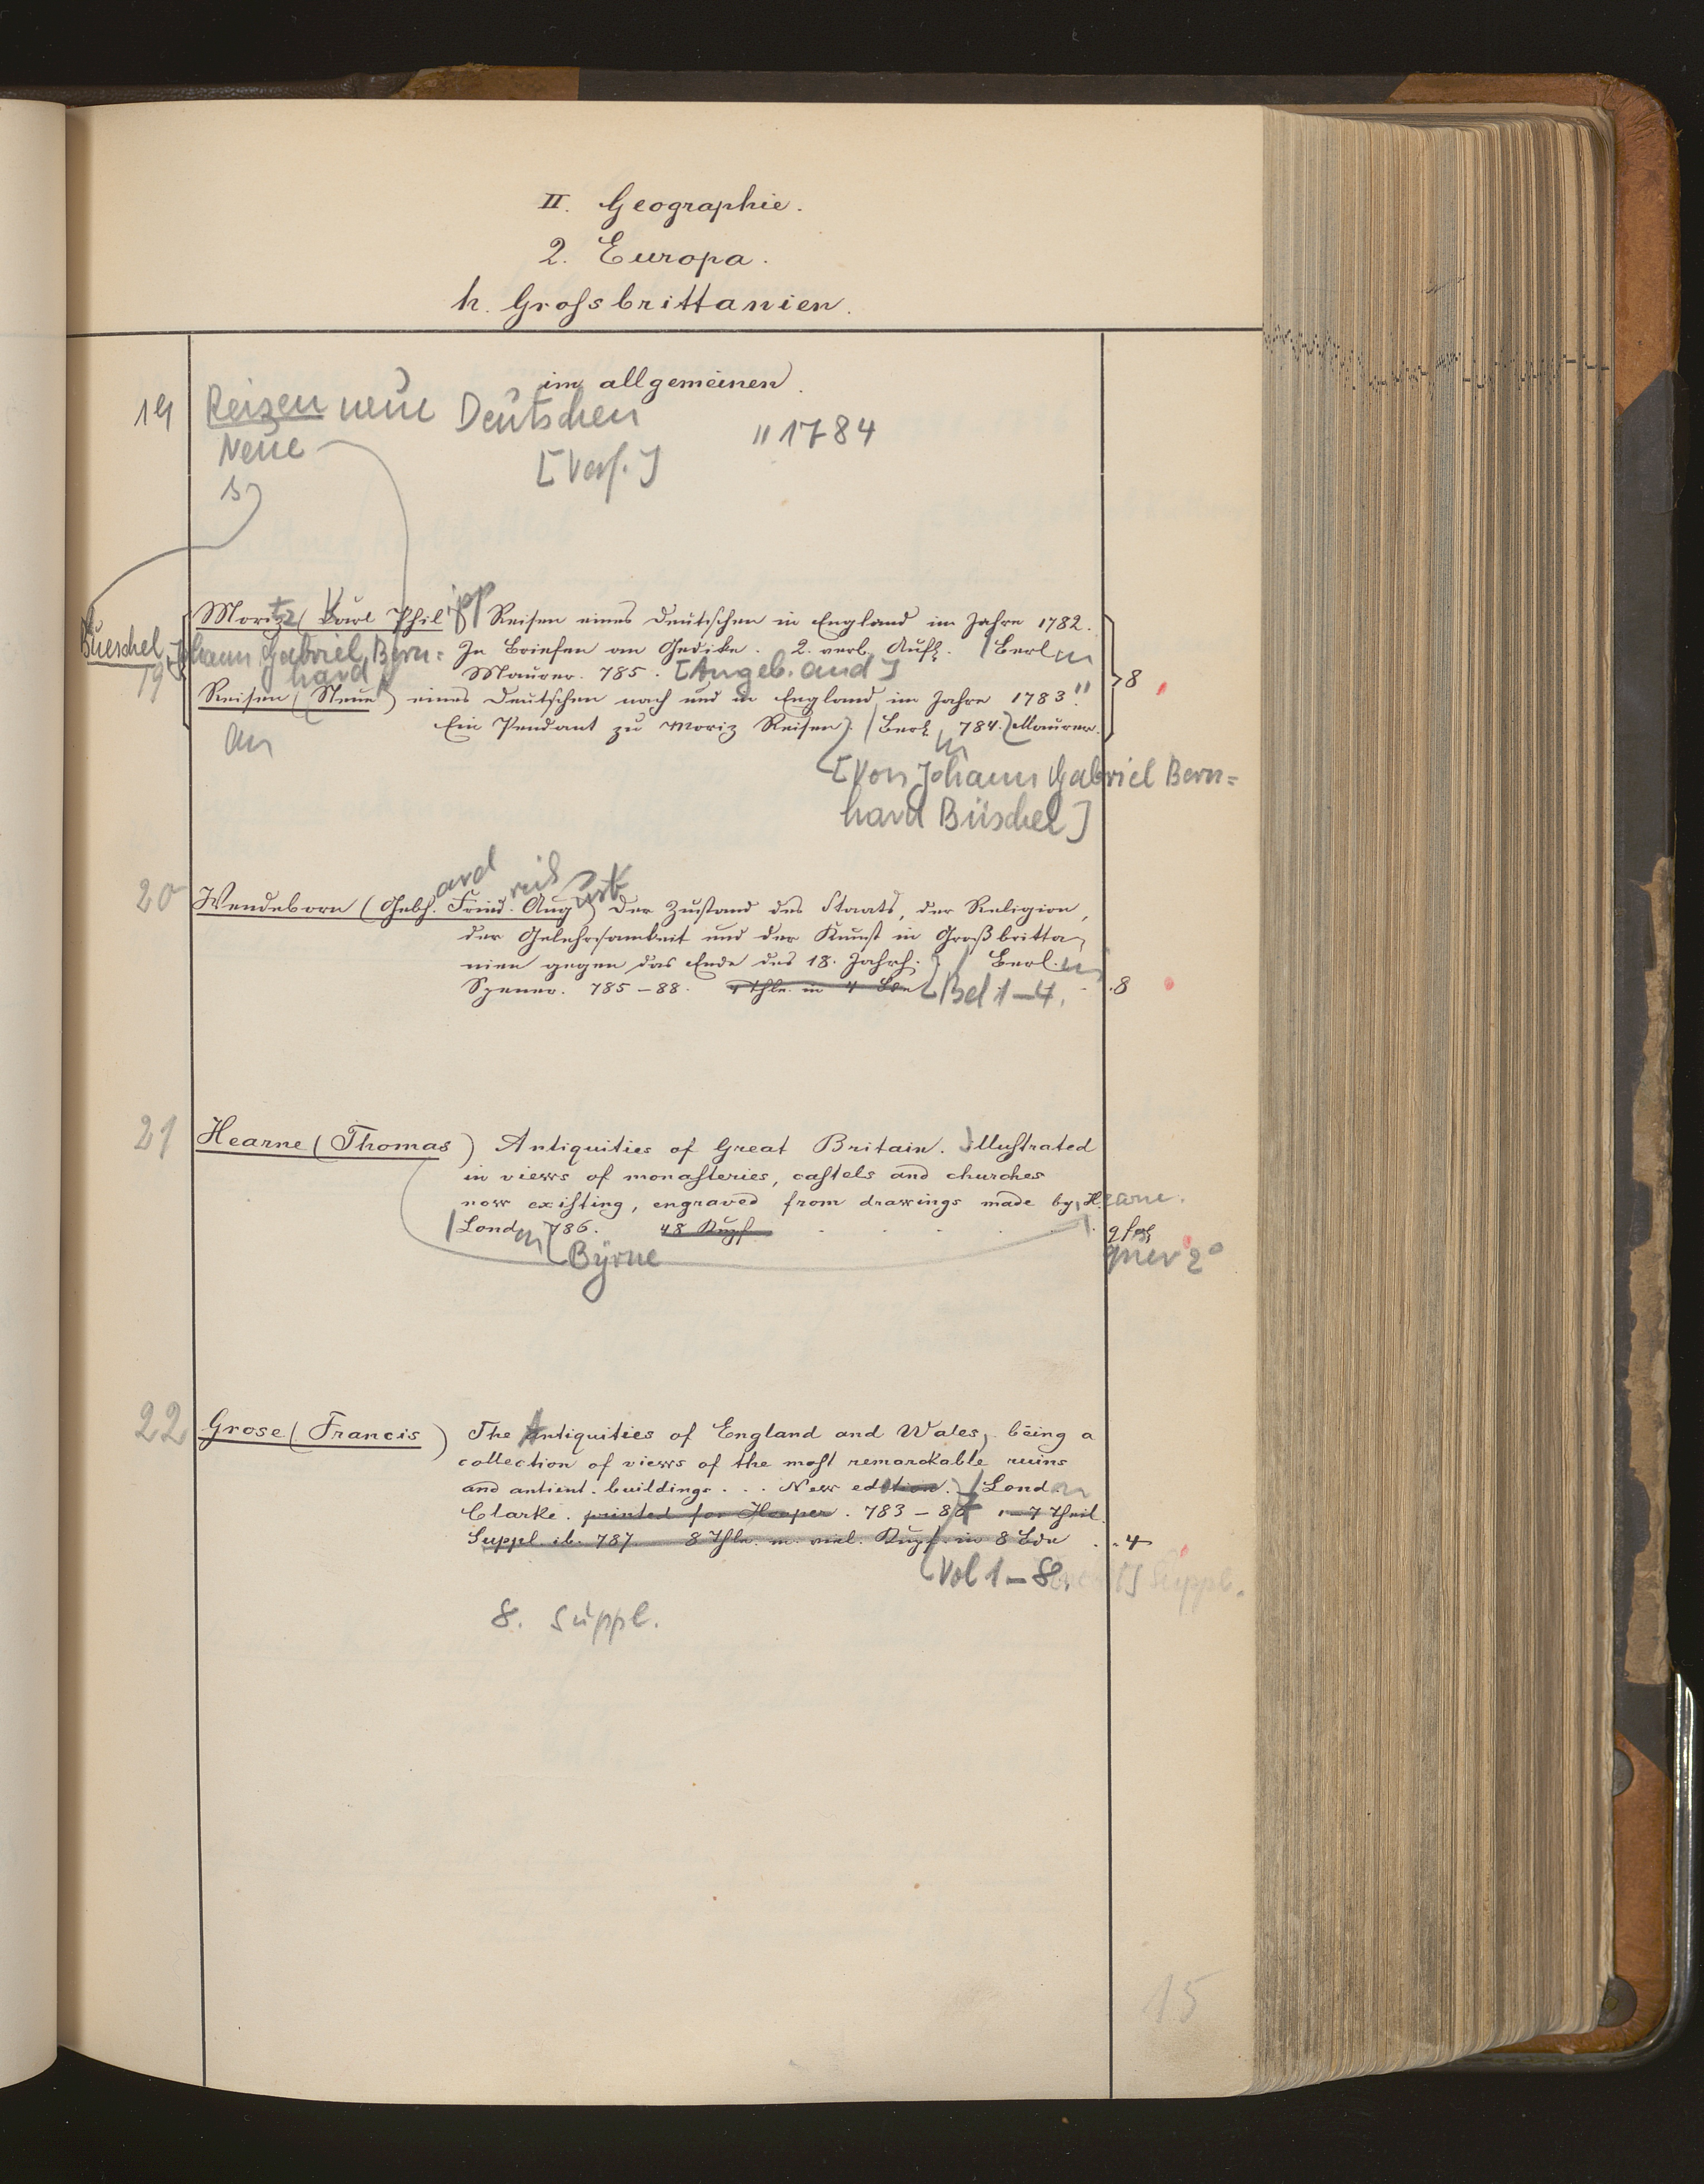 II. Geographie.
2. Europa.
h. Grossbrittanien.
im allgemeinen.
19 Reisen neue Deutschen "1784
Neue [Verf.]
Moritz (Karl Philipp) Reisen eines Deutschen in England im Jahre 1782.
Bueschel, Johann Gabriel Bern= In Briefen an Gedike. 2. verb. Aufl. / Berlin
19 hard Maurer. 785. [Angeb. and]
Reisen (Neue) eines Deutschen nach und in England im Jahre 1783" } 8
an Ein Pendant zu Moriz Reisen). / Berlin 784. Maurer.
[Von Johann Gabriel Bern=
hard Büschel]
20 Wendeborn (Gebhard Friedrich August) Der Zustand des Staats, der Religion,
der Gelehrsamkeit und der Kunst in Großbritta-
nien gegen das Ende des 18. Jahrh. / Berlin
Spener. 785–88. 4 Thle. in 4 Bde Bd 1–4. . 8
21 Hearne (Thomas) Antiquities of Great Britain. illustrated
in views of monasteries, castels and churches
now existing, engraved from drawings made by Hearne.
/ London 786. 48 Kupf q fol
Byrne quer 2°
22 Grose (Francis) The Antiquities of England and Wales, being a
collection of views of the most remarkable ruins
and antient. buildings . . . New edition. / London
Clarke. printed for Hooper. 783–87 1–7 Theil.
Suppl. ib. 787. 8 Thle. m. viel. Kupf. in 8 Bde . . 4
Vol 1–8. Suppl.
8. Suppl.
15